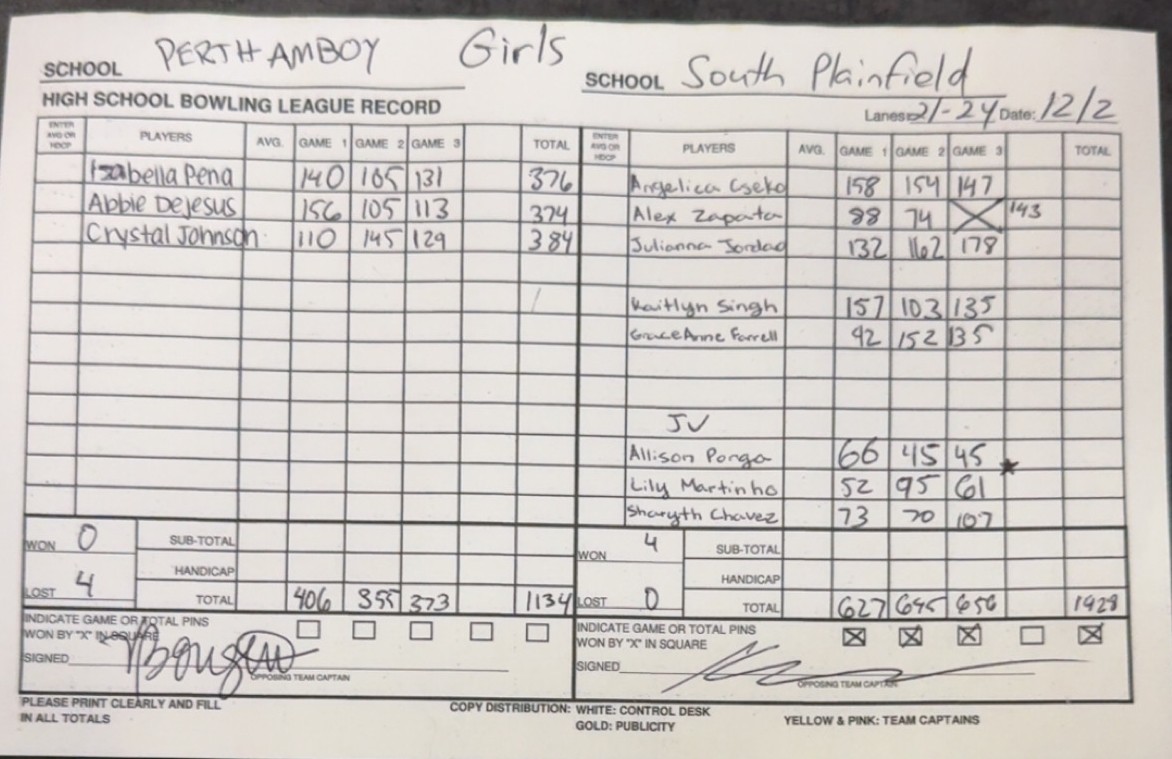 SCHOOL PERTH AMBOY Girls SCHOOL South Plainfield
HIGH SCHOOL BOWLING LEAGUE RECORD Lanes: 21-24 Date: 12/2
ENTER AVG OR HDCP PLAYERS AVG. GAME 1 GAME 2 GAME 3 TOTAL ENTER AVG OR HDCP PLAYERS AVG. GAME 1 GAME 2 GAME 3 TOTAL
Izabella Pena 140 105 131 376 Angelica Cseko 158 154 147
Abbie DeJesus 156 105 113 374 Alex Zapata 88 74 143
Crystal Johnson 110 145 129 384 Julianna Jordao 132 162 178
Kaitlyn Singh 157 103 135
GraceAnne Farrell 92 152 135
JV
Allison Ponga 66 45 45
Lily Martinho 52 95 61
Sharyth Chavez 73 70 107
WON 0 SUB-TOTAL WON 4 SUB-TOTAL
HANDICAP HANDICAP
LOST 4 TOTAL 406 355 373 1134 LOST 0 TOTAL 627 645 656 1928
INDICATE GAME OR TOTAL PINS INDICATE GAME OR TOTAL PINS
WON BY "X" IN SQUARE WON BY "X" IN SQUARE
SIGNED SIGNED
OPPOSING TEAM CAPTAIN OPPOSING TEAM CAPTAIN
PLEASE PRINT CLEARLY AND FILL COPY DISTRIBUTION: WHITE: CONTROL DESK
IN ALL TOTALS GOLD: PUBLICITY YELLOW & PINK: TEAM CAPTAINS